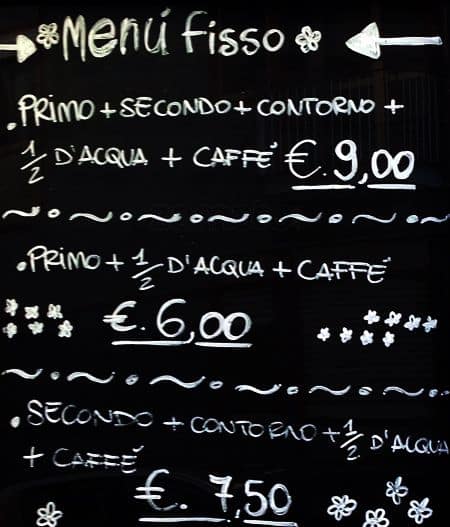 Menú fisso
.PRIMO + SECONDO + CONTORNO +
1/2 D'ACQUA + CAFFE' €. 9,00
.PRIMO + 1/2 D'ACQUA + CAFFE'
€. 6,00
.SECONDO + CONTORNO + 1/2 D'ACQUA
+ CAFFE'
€. 7,50